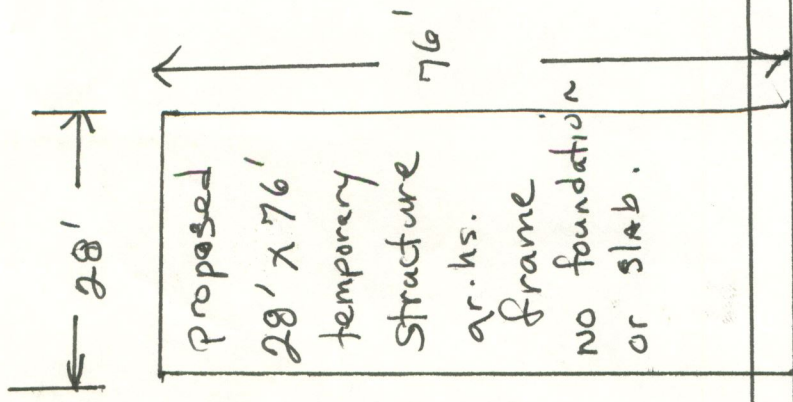 28'
76'
Proposed
28' x 76'
temporary
structure
gr.hs.
frame
no foundation
or slab.